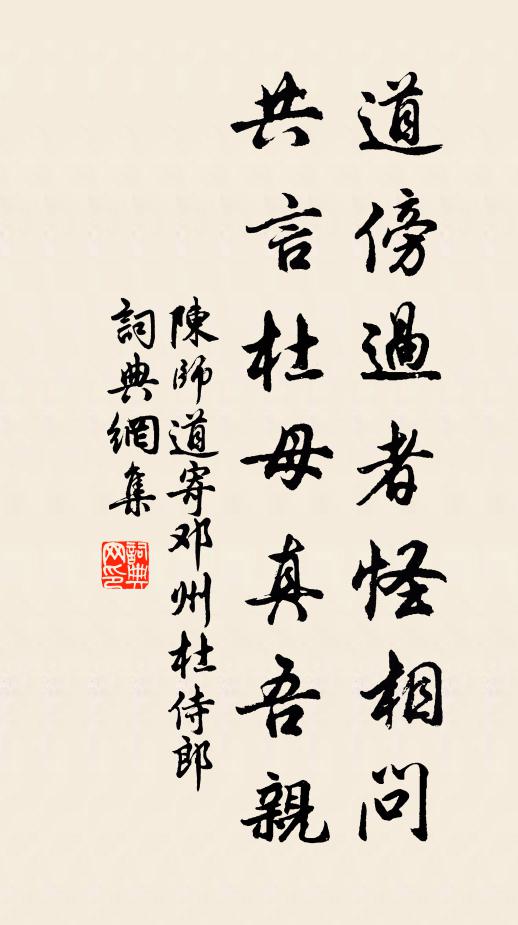 道傍過者怪相問
共言杜母真吾親
陳師道寄邓州杜侍郎
詞典網集
詞典
网印